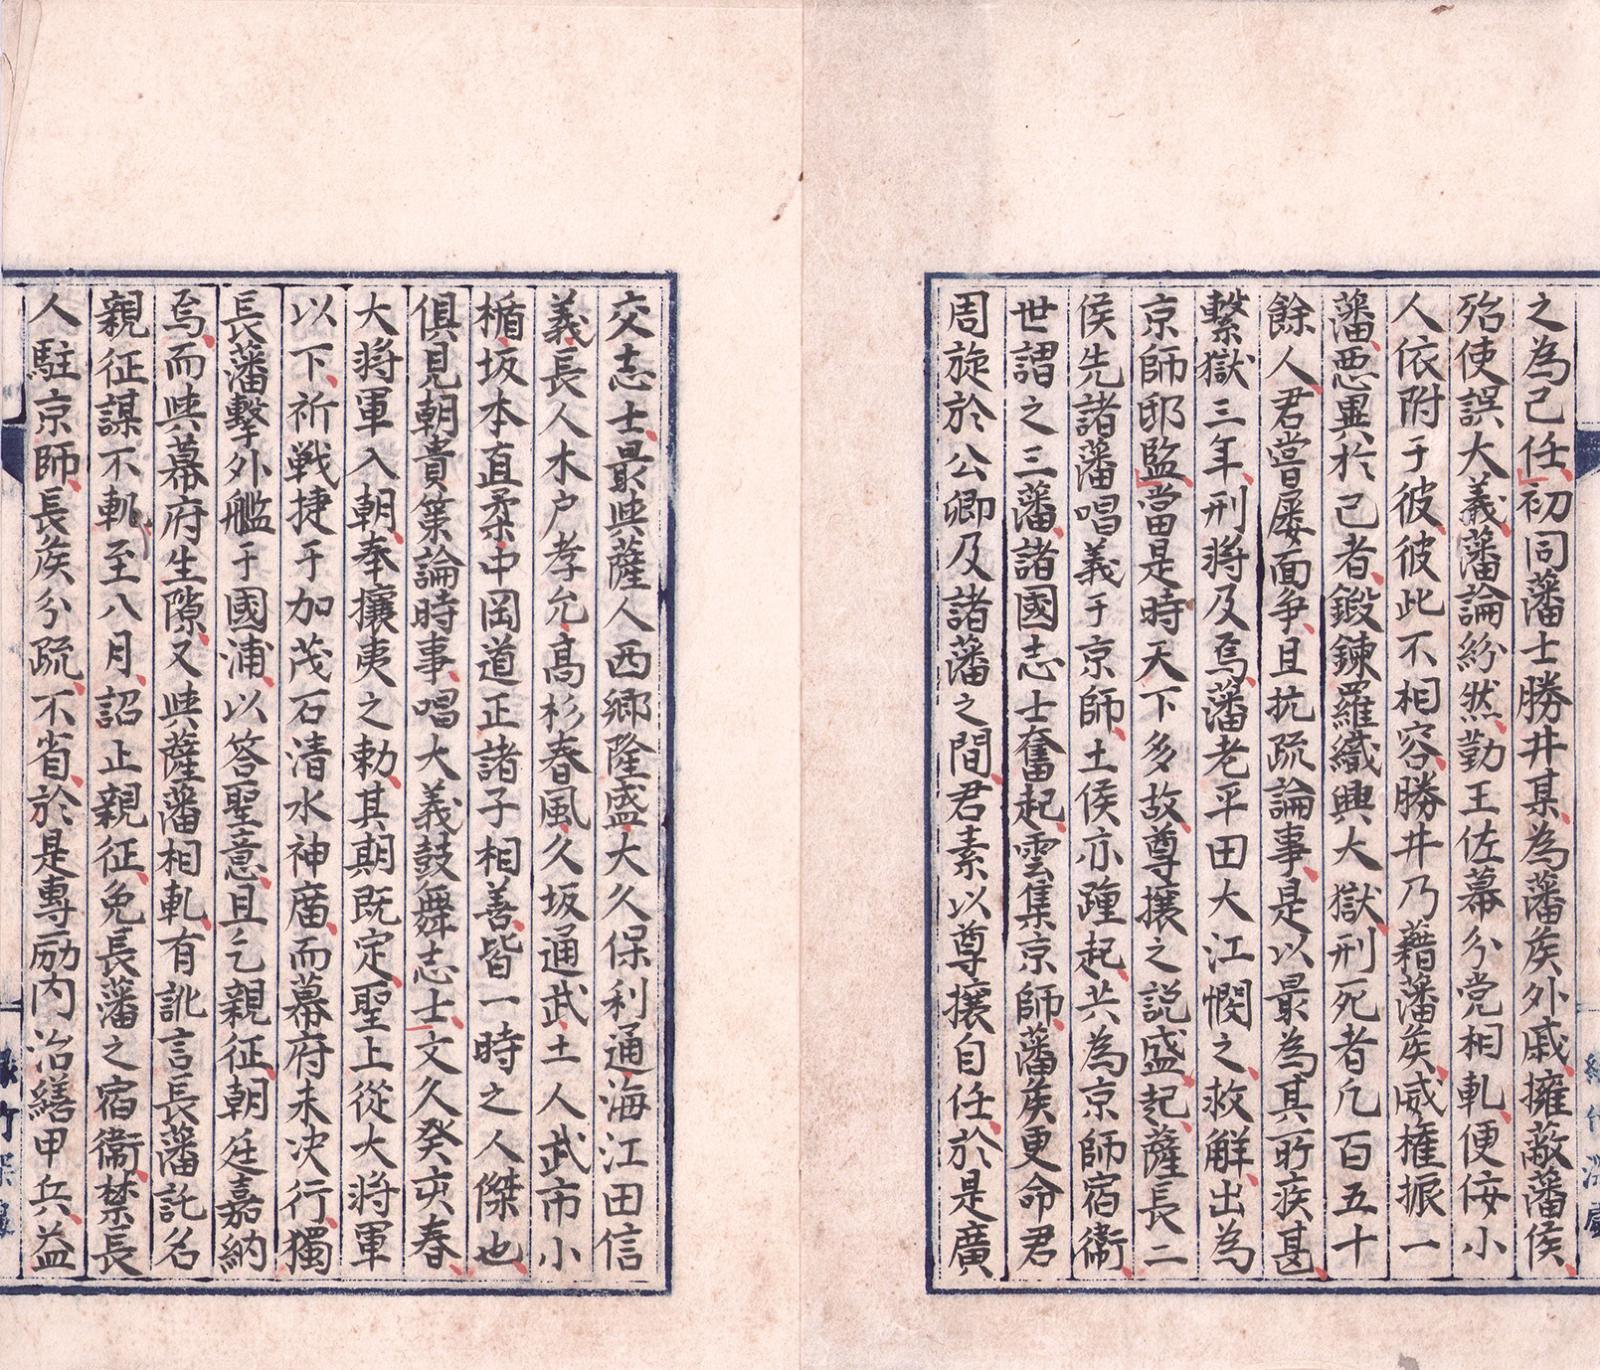 之為己任初同藩士勝井某為藩矦外戚擁敵藩侯
殆使誤大義藩論紛然勤王佐幕分党相軋便侫小
人依附于彼彼此不相容勝井乃藉藩矦威権振一
藩悪異於己者鍛錬羅織興大獄刑死者凢百五十
餘人君嘗屡面争且抗疏論事是以最為其所疾甚
繋獄三年刑将及焉藩老平田大江憫之救解出為
京師邸監當是時天下多故尊攘之説盛起薩長二
侯先諸藩唱義于京師土侯亦踵起共為京師宿衞
世謂之三藩諸國志士奮起雲集京師藩矦更命君
周旋於公卿及諸藩之間君素以尊攘自任於是廣
交志士最與薩人西郷隆盛大久保利通海江田信
義長人木戸孝允高杉春風久坂通武土人武市小
楯坂本直柔中岡道正諸子相善皆一時之人傑也
俱見朝貴策論時事唱大義鼓舞志士文久癸亥春
大将軍入朝奉攘夷之勅其期既定聖上從大将軍
以下祈戦捷于加茂石清水神廟而幕府未决行獨
長藩擊外艦于國浦以答聖意且乞親征朝廷嘉納
焉而與幕府生隙又與薩藩相軋有訛言長藩託名
親征謀不軌至八月詔止親征免長藩之宿衞禁長
人駐京師長矦分疏不省於是專励内治繕甲兵益